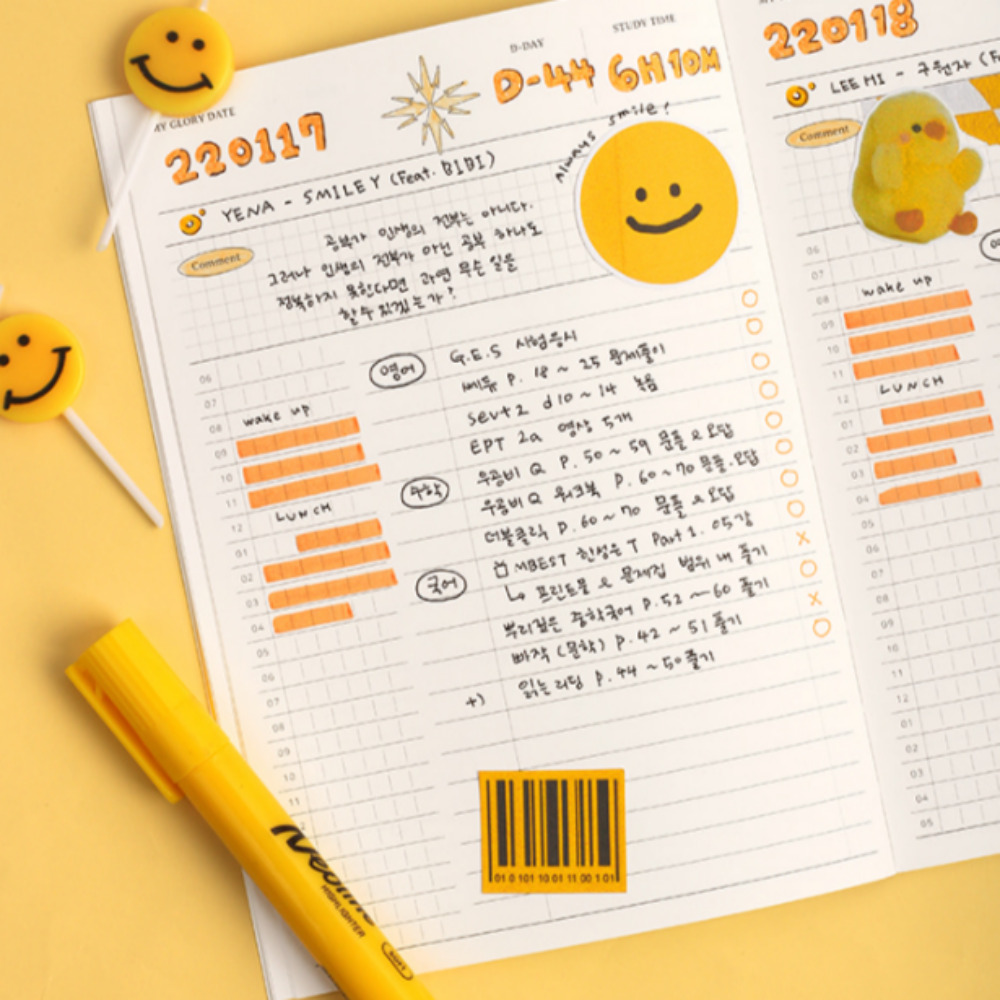 MY GLORY DATE
220117
D-DAY
D-44
STUDY TIME
6H10M
YENA - SMILEY (Feat. BIBI)
Always smile!
Comment
공부가 인생의 전부는 아니다.
그러나 인생의 전부가 아닌 공부 하나도
정복하지 못한다면 과연 무슨 일을
할 수 있겠는가?
06
07
08 wake up
09
10
11
12 LUNCH
01
02
03
04
05
06
07
08
09
10
11
영어
G.E.S 시험응시
써듀 P. 18 ~ 25 문제풀이
sevt2 d10 ~ 14 녹음
EPT 2a 영상 5개
수학
우공비 Q P. 50 ~ 59 문풀 & 오답
우공비 Q 워크북 P. 60 ~ 70 문풀.오답
더블클릭 P. 60 ~ 70 문풀 & 오답
국어
MBEST 한성은 T Part 1. 05강
↳ 프린트물 & 문제집 범위 내 풀기
뿌리깊은 중학국어 P. 52 ~ 60 풀기
빠작 (문학) P. 42 ~ 51 풀기
+) 읽는 리딩 P. 44 ~ 50 풀기
01 0 101 10 01 11 00 1 01
Neoline
HIGHLIGHTER
220118
LEE HI - 구원자 (Fe
Comment
06
07
08 wake up
09
10
11
12 LUNCH
01
02
03
04
05
06
07
08
09
10
11
12
01
02
03
04
05